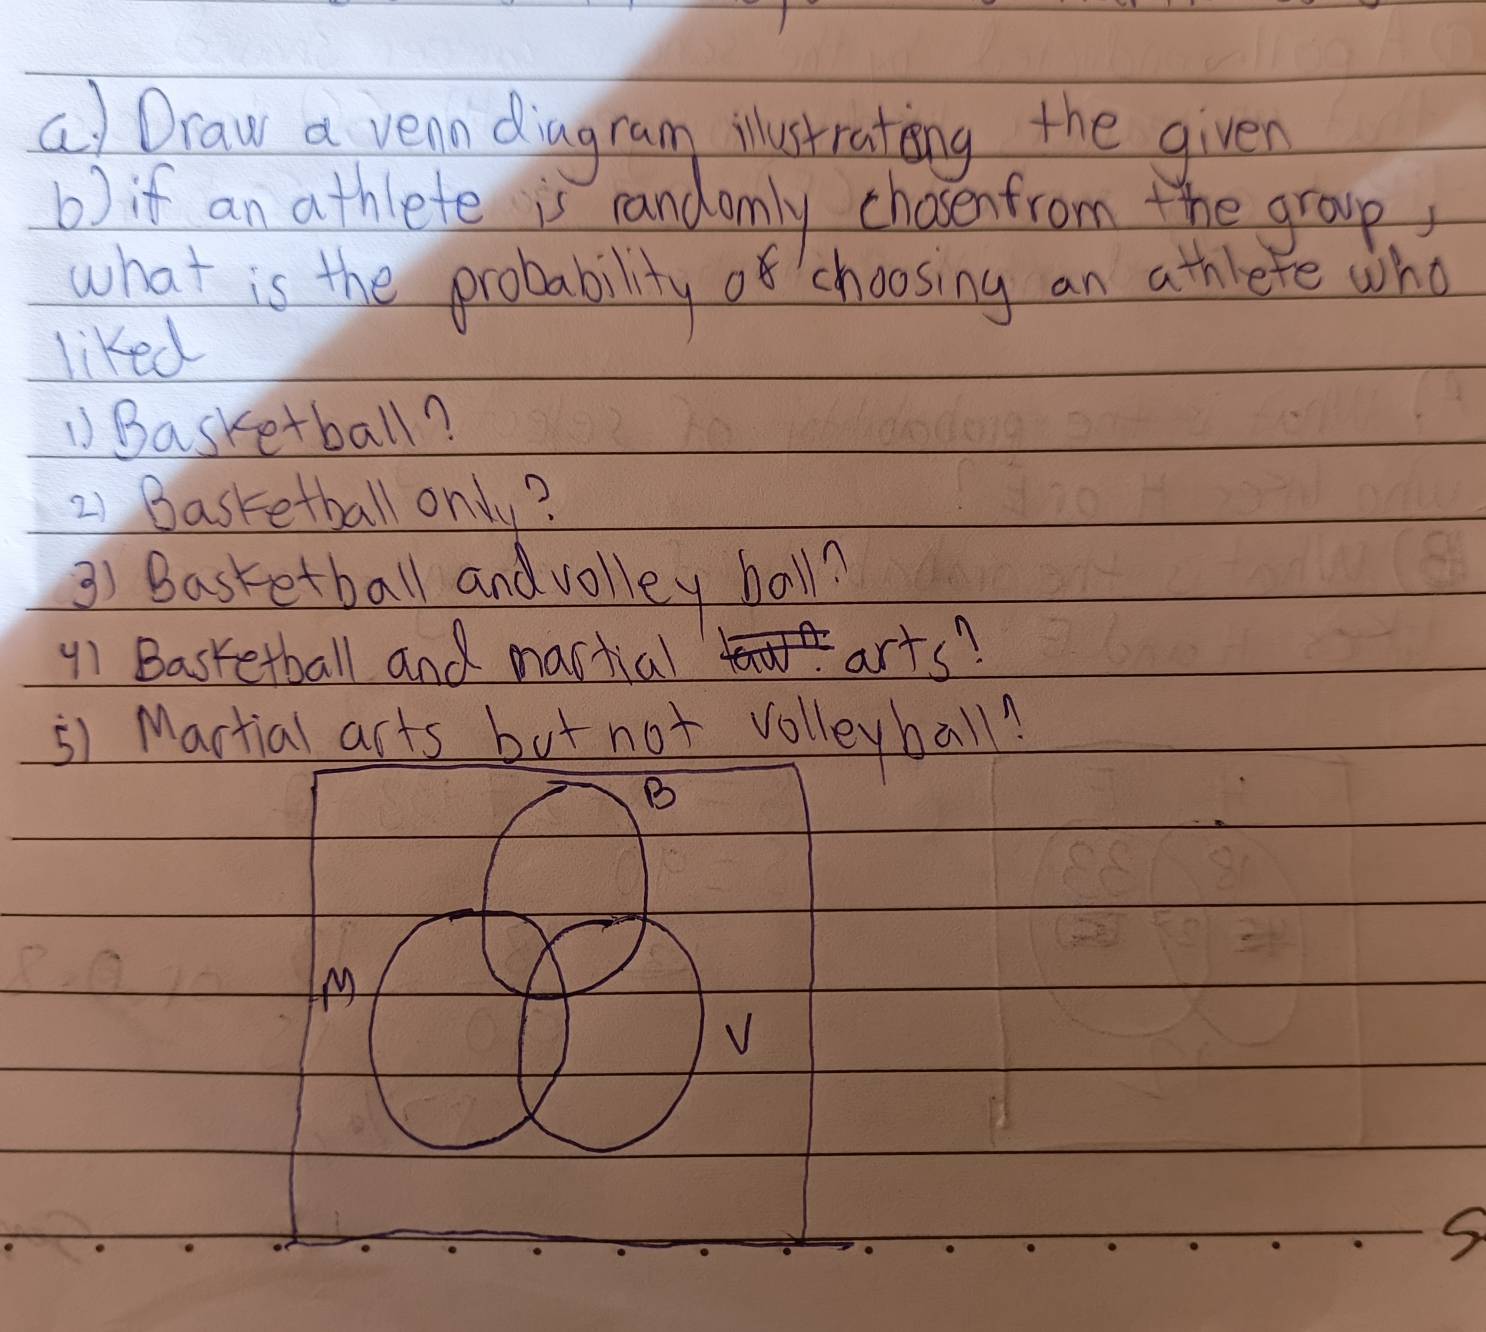 a) Draw a venn diagram illustrating the given
b) if an athlete is randomly chosen from the group,
what is the probability of choosing an athlete who
liked
1) Basketball?
2) Basketball only?
3) Basketball and volley ball?
4) Basketball and martial arts?
5) Martial arts but not volleyball?
B
M
V